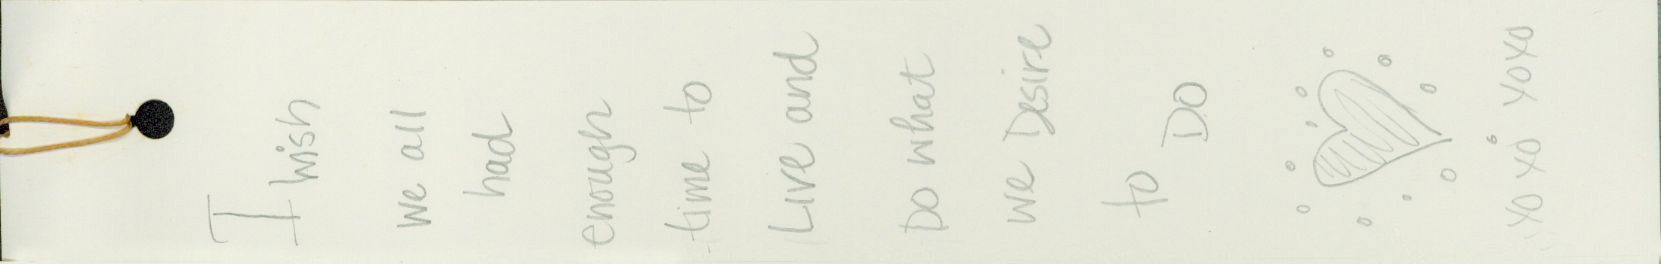 I wish
we all
had
enough
time to
Live and
Do what
we Desire
to Do
xo xo xoxo